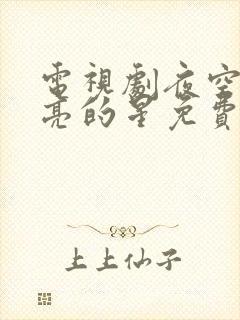 電視劇夜空
亮的星免費
上上仙子